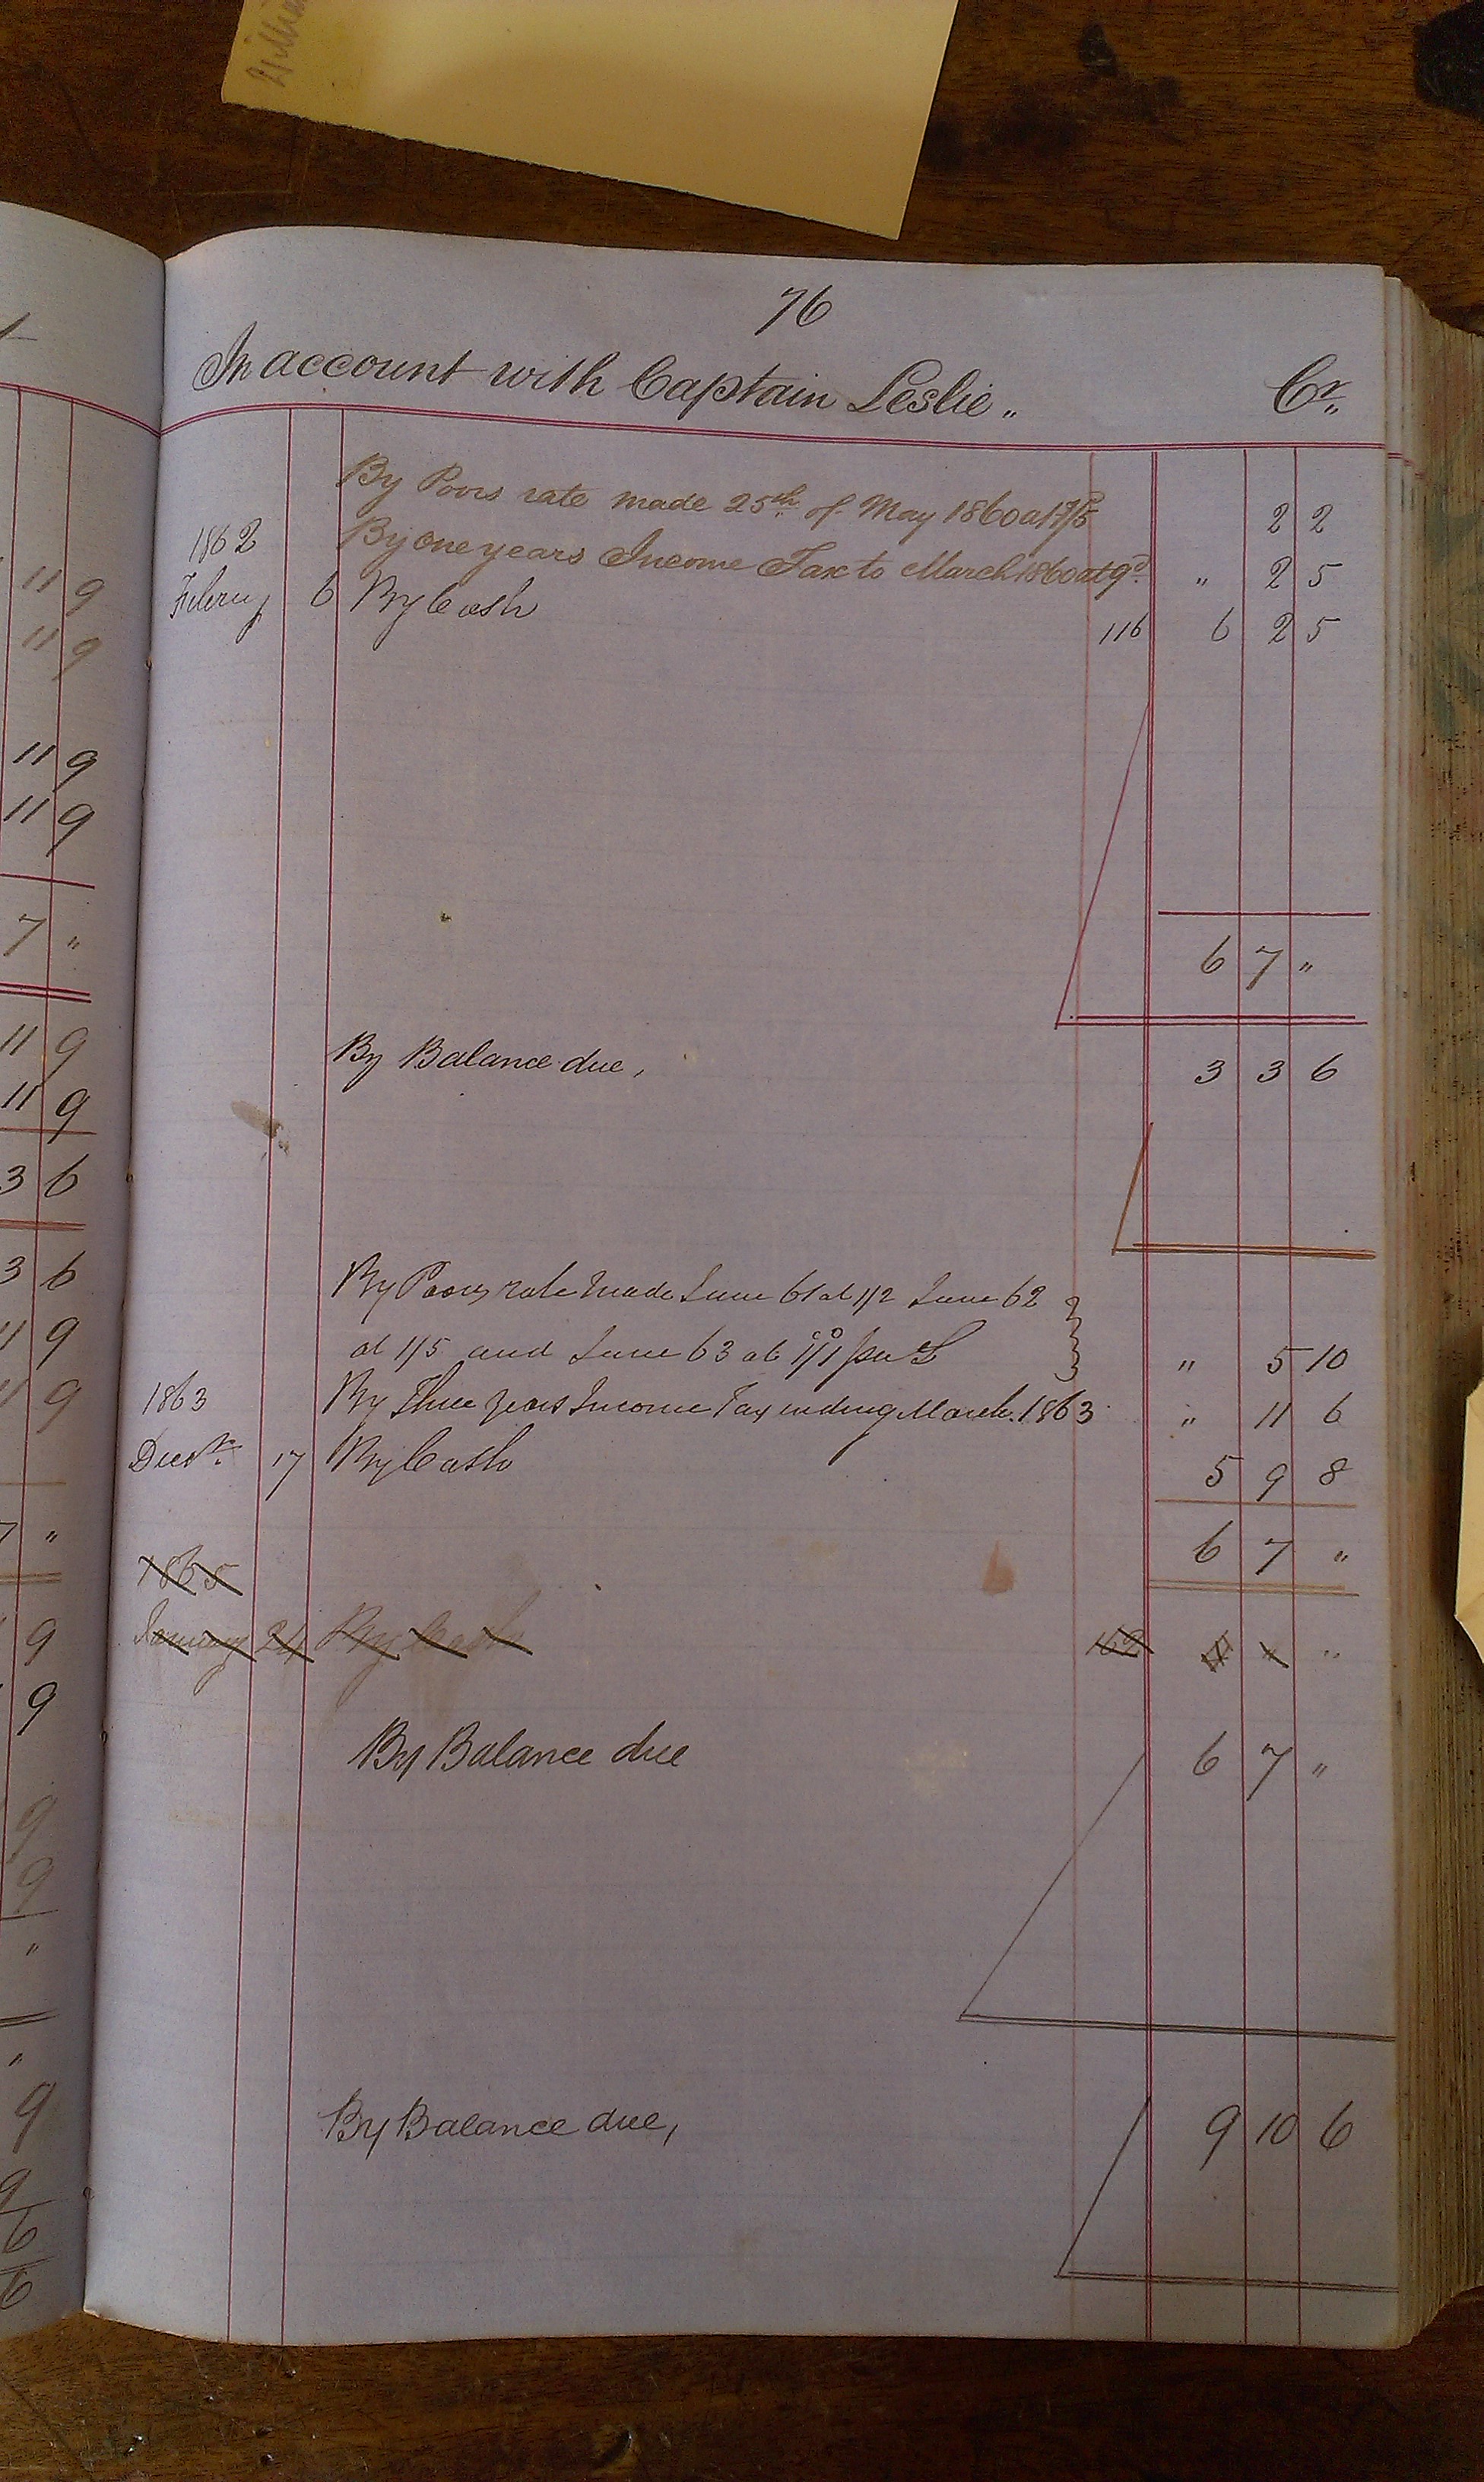 76
In account with Captain Leslie„ Cr„
By Poors rate made 25th of May 1860 at 1/5 2 2
1862 By one years Income Tax to March 1860 at 9d „ 2 5
6 By Cash 116 6 2 5
6 7 „
By Balance due, 3 3 6
By Poors rate made June 61 at 1/2 June 62
at 1/5 and June 63 at 1/1 per £ „ 5 10
1863 By Three years Income Tax ending March. 1863 „ 11 6
17 By Cash 5 9 8
6 7 „
1865
January 24 By Cash 162 „
By Balance due 6 7 „
By Balance due, 9 10 6
11 9
11 9
11 9
11 9
7 „
11 9
11 9
3 6
3 6
11 9
11 9
7 „
9
9
9
9
„
„
9
9
6
6